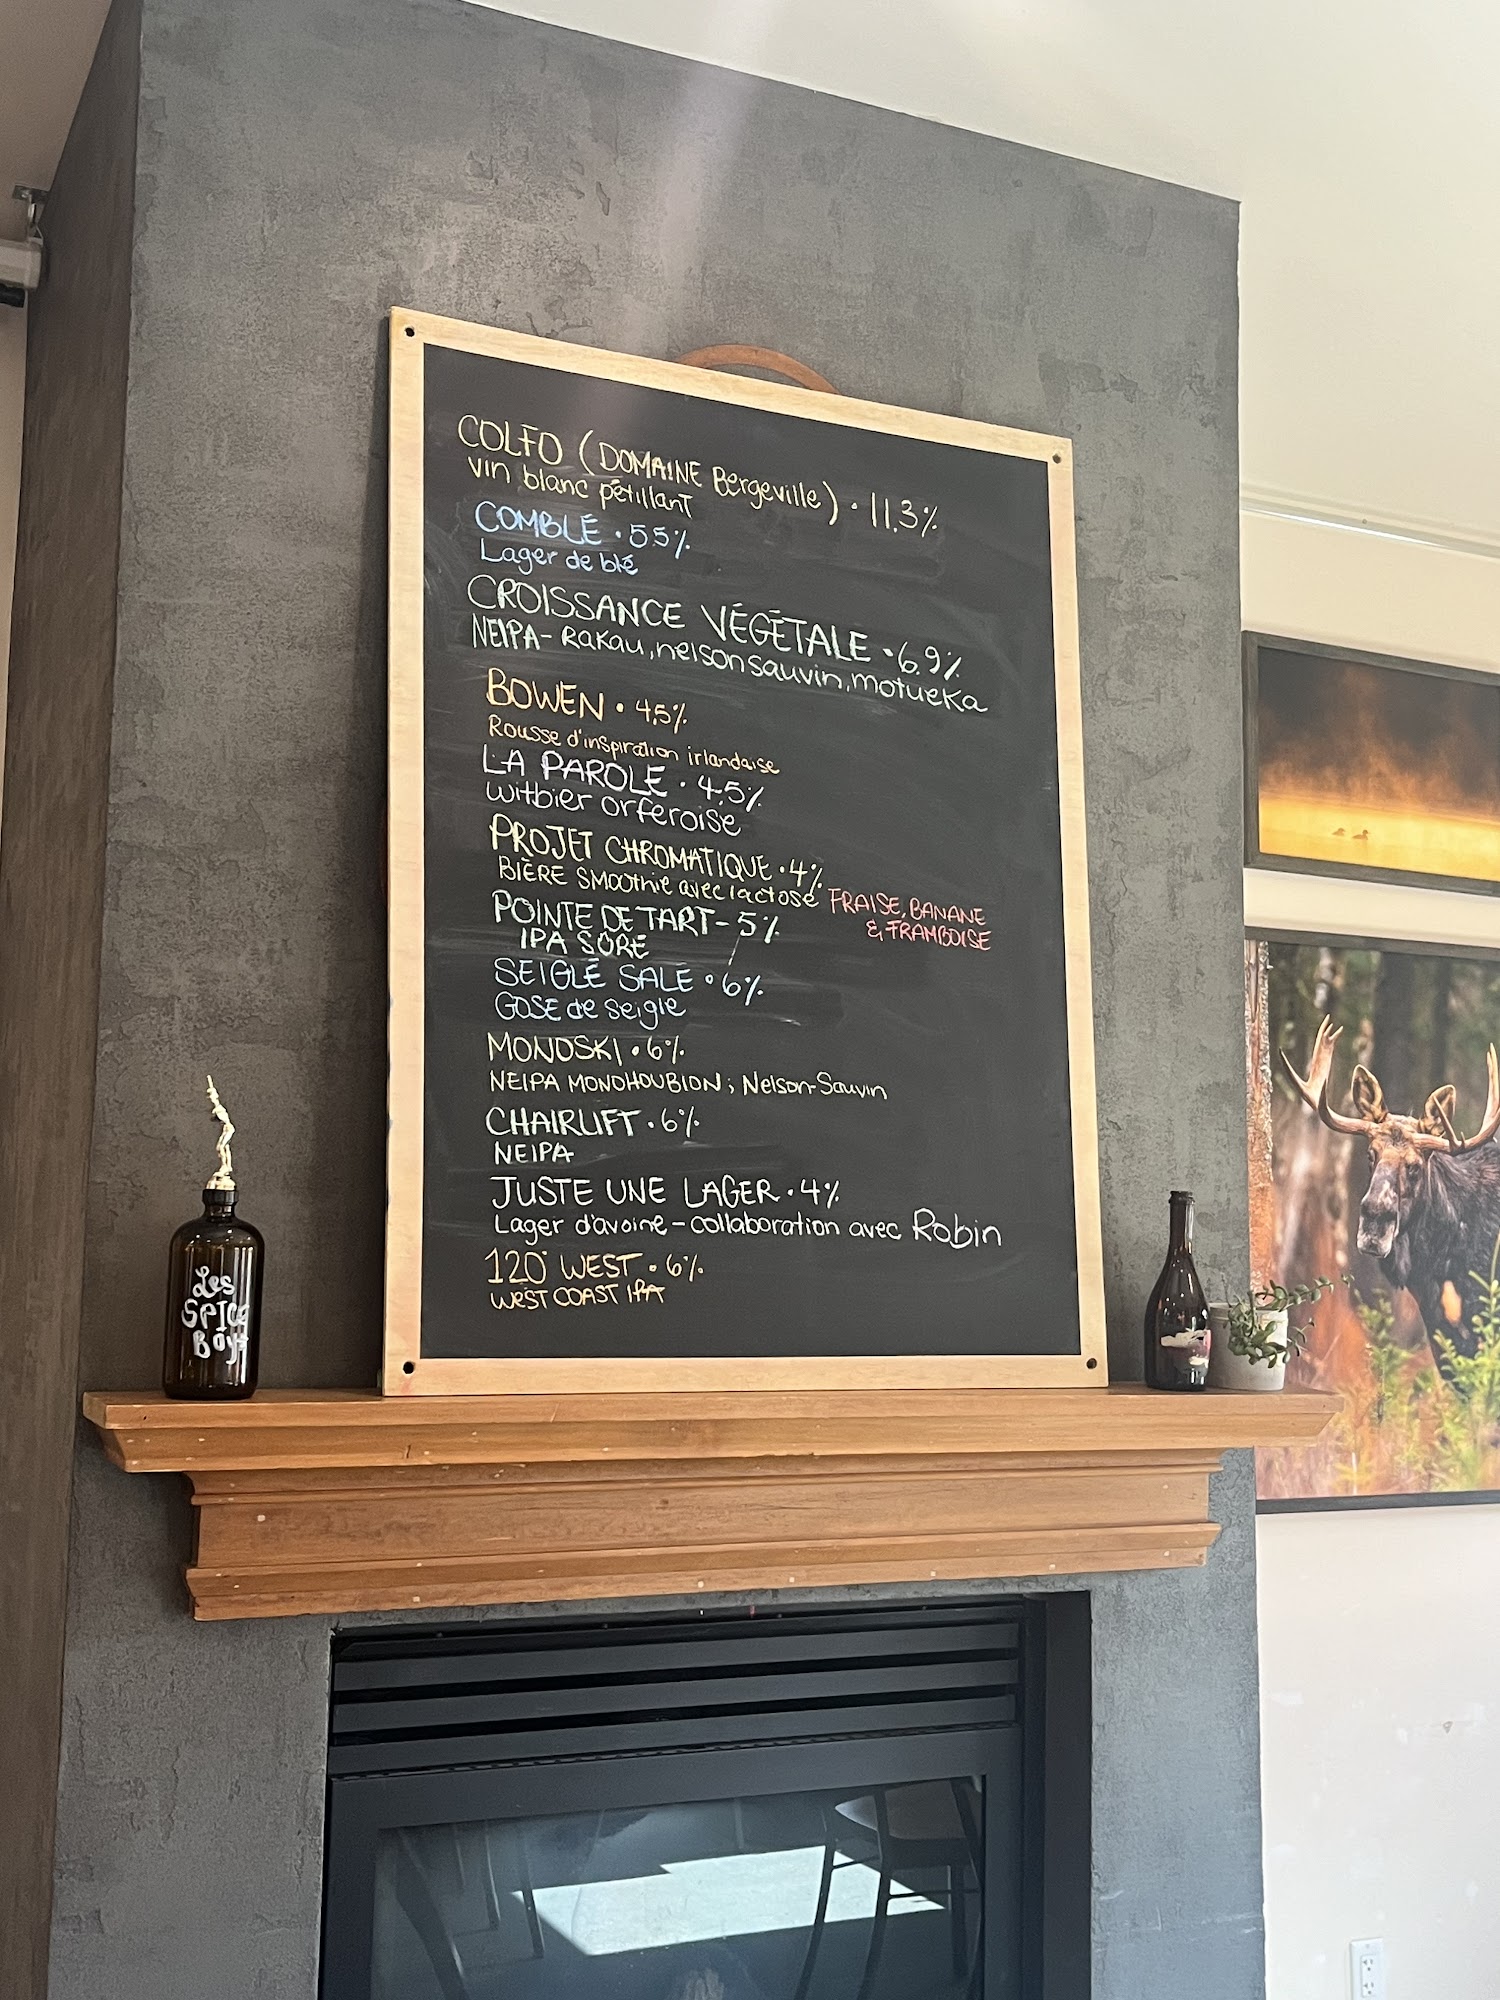 COLFO (DOMAINE Bergeville) • 11,3%
vin blanc pétillant
COMBLÉ • 5,5%
Lager de blé
CROISSANCE VÉGÉTALE • 6,9%
NEIPA - Rakau, nelson sauvin, motueka
BOWEN • 4,5%
Rousse d'inspiration irlandaise
LA PAROLE • 4,5%
witbier orferoise
PROJET CHROMATIQUE • 4%
BIÈRE SMOOthie avec lactose FRAISE, BANANE
& FRAMBOISE
POINTE DE TART - 5%
IPA SÛRE
SEIGLE SALÉ • 6%
GOSE de seigle
MONOSKI • 6%
NEIPA MONOHOUBLON ; Nelson-Sauvin
CHAIRLIFT • 6%
NEIPA
JUSTE UNE LAGER • 4%
Lager d'avoine - collaboration avec Robin
120° WEST • 6%
WEST COAST IPA
Les
SPICE
BOYS